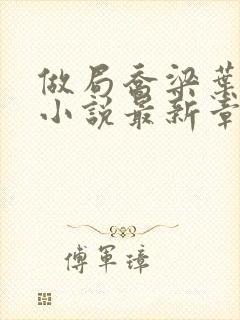 做局乔梁葉
小說最新章
傅軍璋